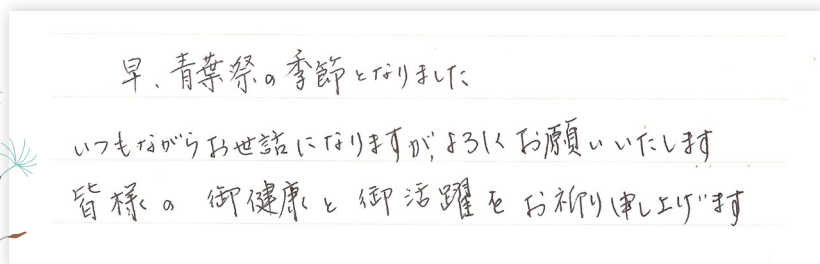 早、青葉祭の季節となりました
いつもながらお世話になりますが、よろしくお願いいたします
皆様の御健康と御活躍をお祈り申し上げます